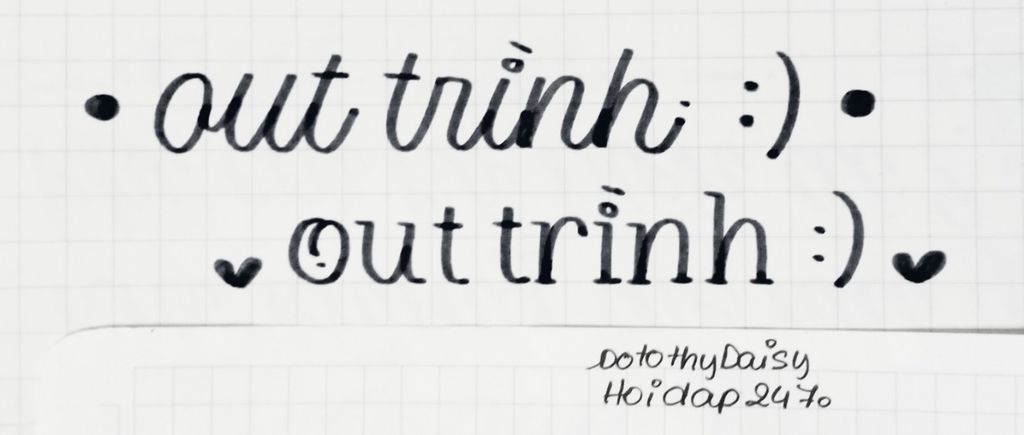 • out trình :) •
♥ out trình :) ♥
DotothyDaisy
Hoidap247